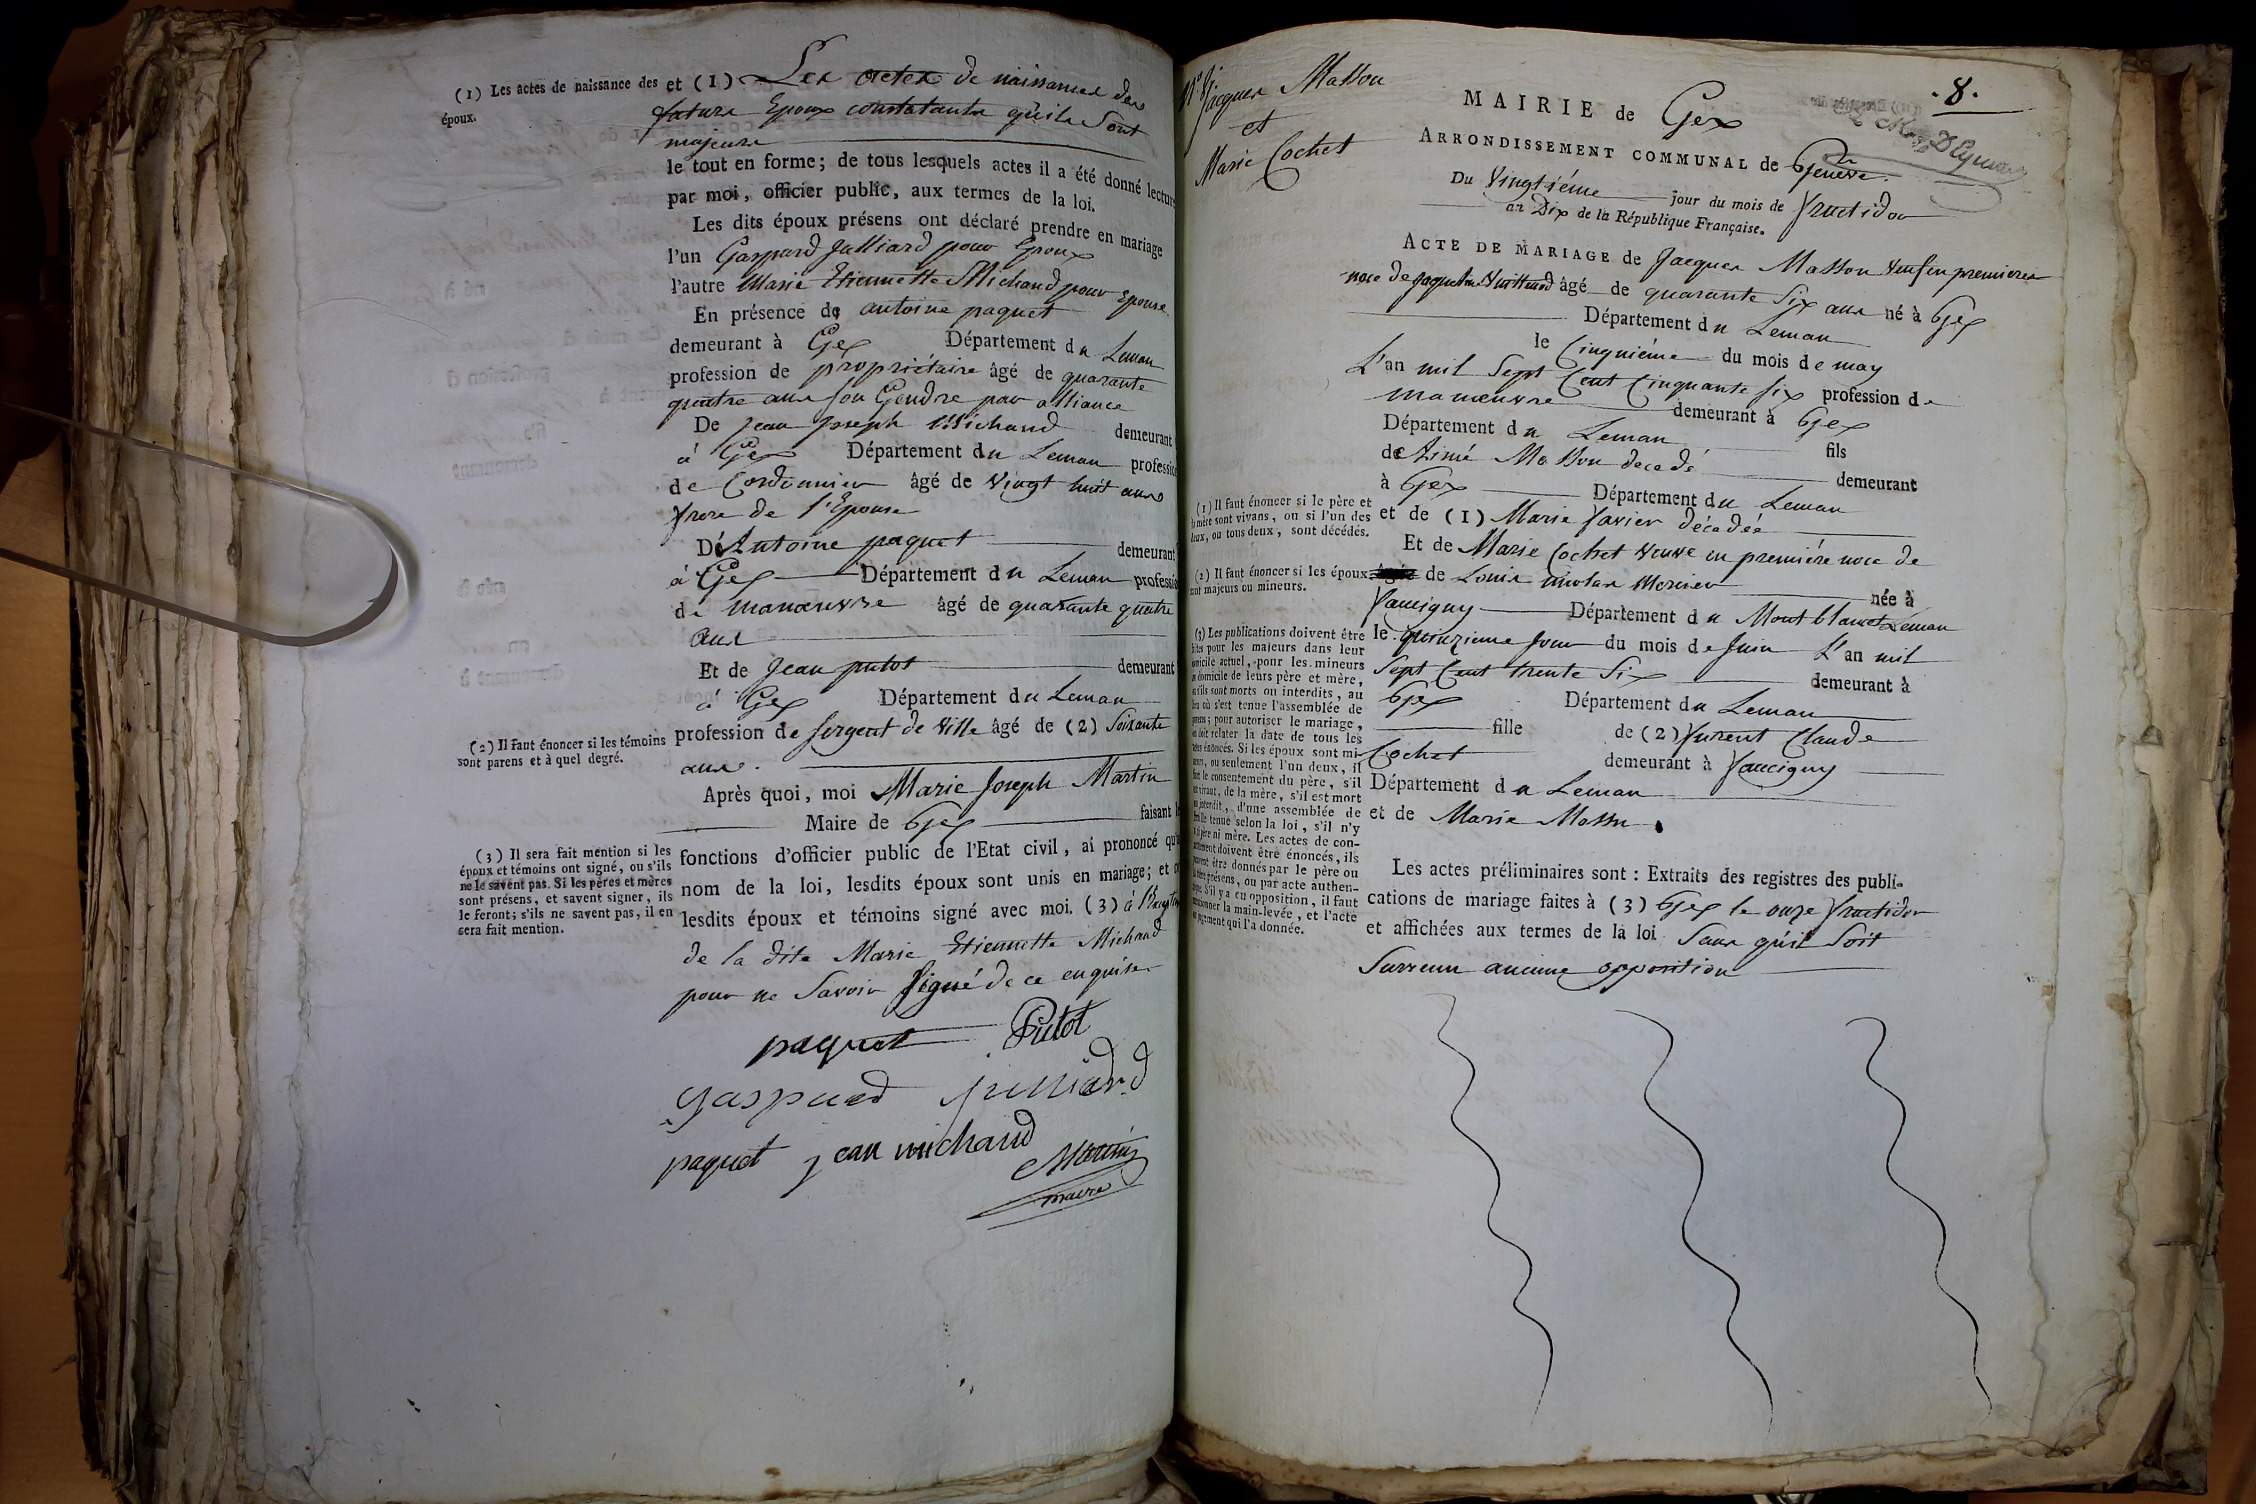 (1) Les actes de naissance des
époux.
et (1) Les actes de naissances des
futurs Epoux constatants qu'ils sont
majeurs
le tout en forme; de tous lesquels actes il a été donné lecture
par moi, officier public, aux termes de la loi.
Les dits époux présens ont déclaré prendre en mariage
l'un Gaspard Julliard pour Epoux
l'autre Marie Etiennette Michaud pour Epouse
En présence de antoine paquet
demeurant à Gex Département du Leman
profession de propriétaire âgé de quarante
quatre ans son Gendre par alliance
De jean joseph Michaud demeurant
à Gex Département du Leman profession
de Cordonnier âgé de Vingt huit ans
frere de l'Epouse
De Antoine paquet demeurant
à Gex Département du Leman profession
de manœuvre âgé de quarante quatre
ans
Et de Jean putot demeurant
à Gex Département du Leman
profession de sergent de Ville âgé de (2) soixante
ans.
(2) Il faut énoncer si les témoins
sont parens et à quel degré.
Après quoi, moi Marie Joseph Martin
Maire de Gex faisant les
fonctions d'officier public de l'Etat civil, ai prononcé qu'au
nom de la loi, lesdits époux sont unis en mariage; et ont
lesdits époux et témoins signé avec moi. (3) à
de la dite Marie Etiennette Michaud
pour ne savoir signé de ce enquise
(3) Il sera fait mention si les
époux et témoins ont signé, ou s'ils
ne le savent pas. Si les pères et mères
sont présens, et savent signer, ils
le feront; s'ils ne savent pas, il en
sera fait mention.
paquet Putot
gaspard julliard
paquet jean michaud
Martin
maire
Jacques Masson
et
Marie Cochet
.8.
MAIRIE de Gex
ARRONDISSEMENT COMMUNAL de Genève.
Du Vingtiéme jour du mois de fructidor
an Dix de la République Française.
ACTE DE MARIAGE de Jacques Masson Veuf en premieres
noce de âgé de quarante six ans né à Gex
Département du Leman
le Cinquiéme du mois de may
L'an mil Sept Cent Cinquante six profession de
manœuvre demeurant à Gex
Département du Leman fils
de Aimé Masson decedé demeurant
à Gex Département du Leman
et de (1) Marie favier décedée
Et de Marie Cochet Veuve en premiére noce de
de Louis nicolas Mercier née à
faucigny Département du Montblanc Leman
le quinzieme jour du mois de Juin L'an mil
Sept Cent trente Six demeurant à
Gex Département du Leman
fille de (2) Claude
Cochet demeurant à faucigny
Département du Leman
et de Marie
(1) Il faut énoncer si le père et
la mère sont vivans, ou si l'un des
deux, ou tous deux, sont décédés.
(2) Il faut énoncer si les époux
sont majeurs ou mineurs.
(3) Les publications doivent être
faites pour les majeurs dans leur
domicile actuel, pour les mineurs
au domicile de leurs père et mère,
s'ils sont morts ou interdits, au
lieu où s'est tenue l'assemblée de
parens; pour autoriser le mariage,
on doit relater la date de tous les
actes énoncés. Si les époux sont mi-
neurs, ou seulement l'un deux, il
faut le consentement du père, s'il
est vivant, de la mère, s'il est mort
ou interdit, d'une assemblée de
famille tenue selon la loi, s'il n'y
a père ni mère. Les actes de con-
sentement doivent être énoncés, ils
peuvent être donnés par le père ou
la mère présens, ou par acte authen-
tique. S'il y a eu opposition, il faut
mentionner la main-levée, et l'acte
ou jugement qui l'a donnée.
Les actes préliminaires sont : Extraits des registres des publi-
cations de mariage faites à (3) Gex le onze fructidor
et affichées aux termes de la loi sans qu'il soit
Survenu aucune opposition